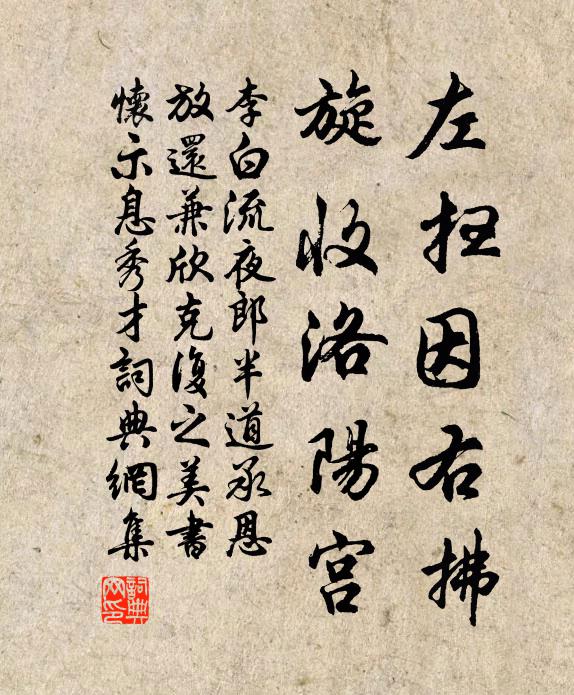 左扫因右拂
旋收洛陽宫
李白流夜郎半道承恩
放還兼欣克復之美書
懷示息秀才詞典網集
詞典
网印